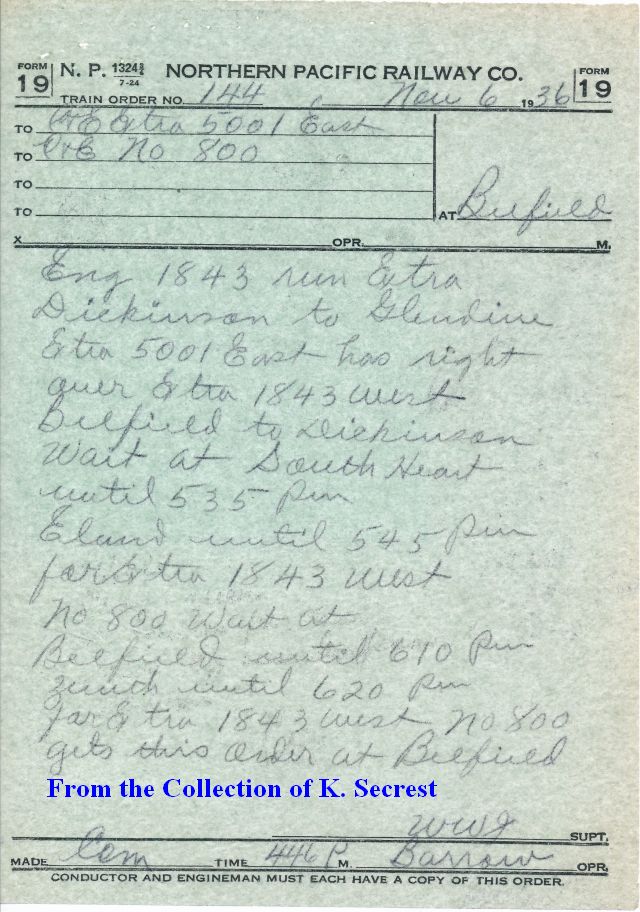 FORM 19 N. P. 1324 7-24 NORTHERN PACIFIC RAILWAY CO. FORM 19
TRAIN ORDER NO. 144 Nov 6 1936
TO C&E Extra 5001 East
TO C&E No 800
TO
TO AT Belfield
X OPR. M.
Eng 1843 run Extra
Dickinson to Glendive
Extra 5001 East has right
over Extra 1843 West
Belfield to Dickinson
Wait at South Heart
until 535 pm
Eland until 545 pm
for Extra 1843 West
No 800 Wait at
Belfield until 610 pm
Zenith until 620 pm
for Extra 1843 West No 800
gets this order at Belfield
From the Collection of K. Secrest
SUPT.
MADE Com TIME 446 P M. Barrow OPR.
CONDUCTOR AND ENGINEMAN MUST EACH HAVE A COPY OF THIS ORDER.